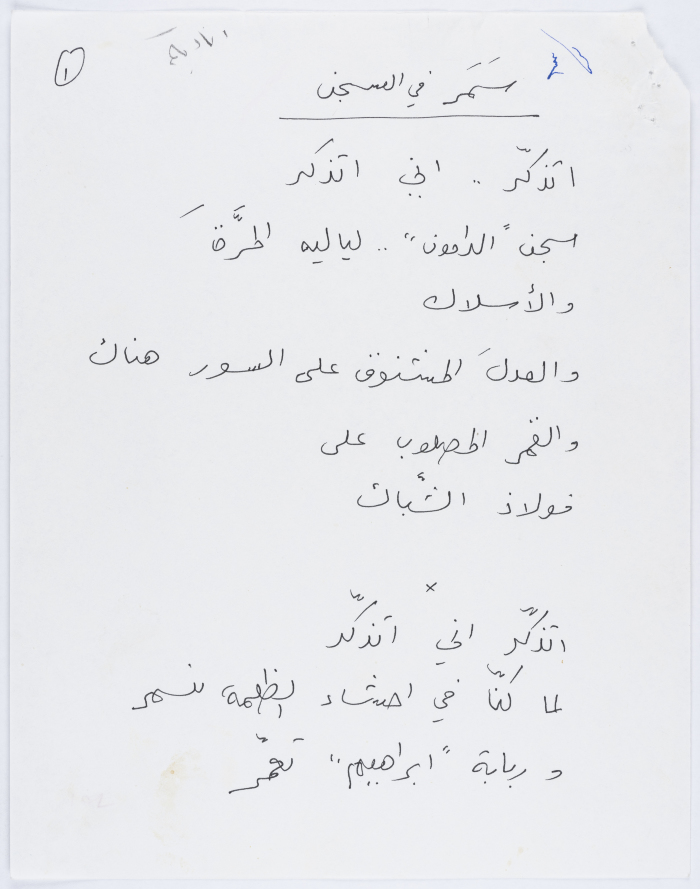 ١
سَمَر في السجن
اتذكّر .. اني اتذكر
سجن "الدامون" .. لياليه المُرَّة
والأسلاك
والعدلَ المشنوق على السور هناك
والقمر المصلوب على
فولاذ الشّباك
×
اتذكّر اني اتذكّر
لما كنّا في احشاء الظلمة نسمر
و ربابة "ابراهيم"